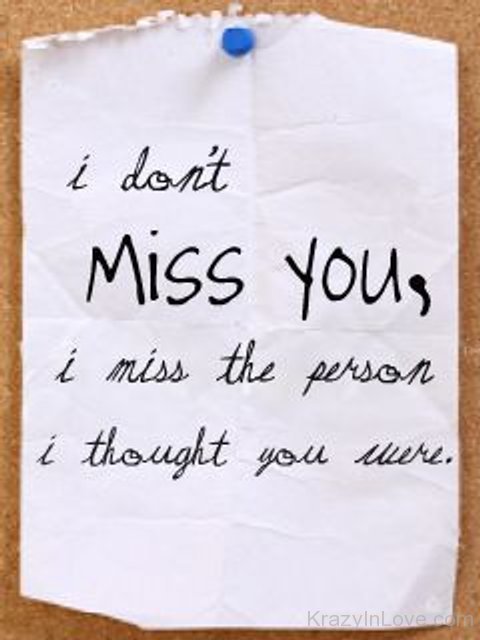 i don't
Miss you,
i miss the person
i thought you were.
KrazyInLove.com